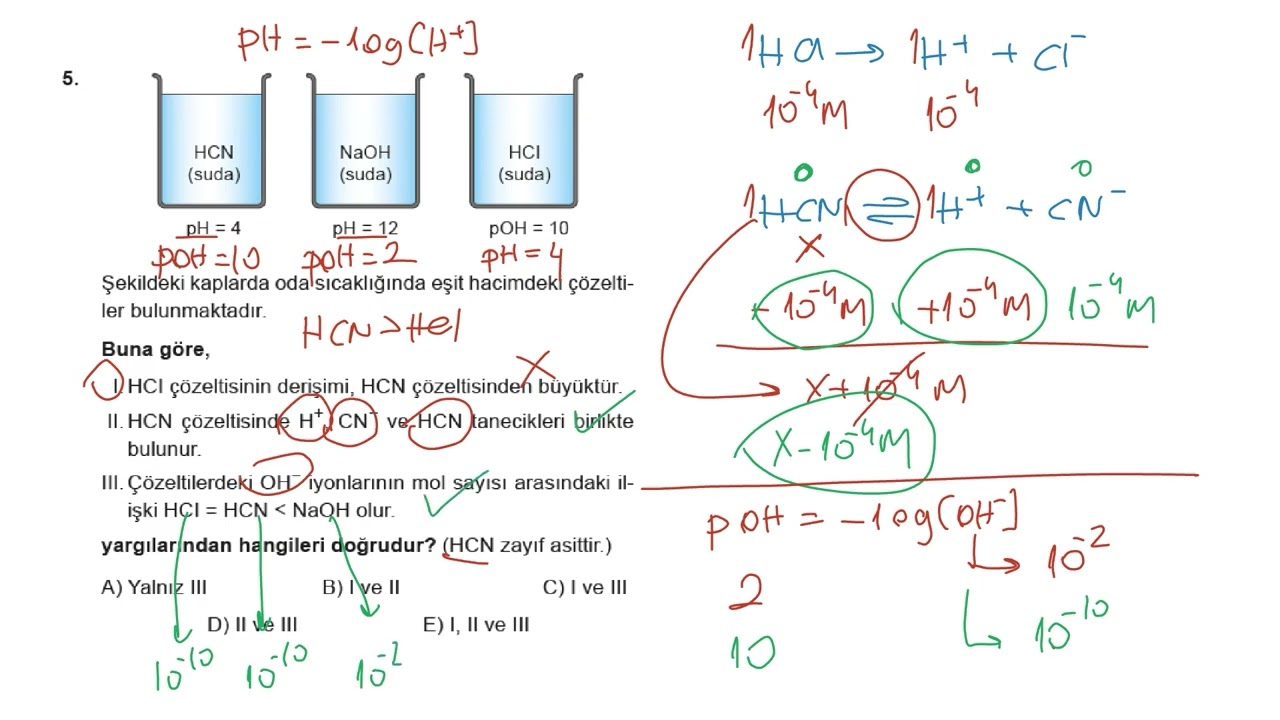 pH = -log[H+]
5.
HCN
(suda)
NaOH
(suda)
HCI
(suda)
pH = 4
pH = 12
pOH = 10
pOH = 10
pOH = 2
pH = 4
Şekildeki kaplarda oda sıcaklığında eşit hacimdeki çözelti-
ler bulunmaktadır.
HCN > HCl
Buna göre,
I. HCI çözeltisinin derişimi, HCN çözeltisinden büyüktür.
II. HCN çözeltisinde H⁺, CN⁻ ve HCN tanecikleri birlikte
bulunur.
III. Çözeltilerdeki OH⁻ iyonlarının mol sayısı arasındaki il-
işki HCI = HCN < NaOH olur.
yargılarından hangileri doğrudur? (HCN zayıf asittir.)
A) Yalnız III
B) I ve II
C) I ve III
D) II ve III
E) I, II ve III
10⁻¹⁰
10⁻¹⁰
10⁻²
1HCl → 1H⁺ + Cl⁻
10⁻⁴M 10⁻⁴
1HCN ⇌ 1H⁺ + CN⁻
X
- 10⁻⁴M +10⁻⁴M 10⁻⁴M
X+10⁻⁴ M
X-10⁻⁴M
pOH = -log[OH⁻]
2
10⁻²
10
10⁻¹⁰